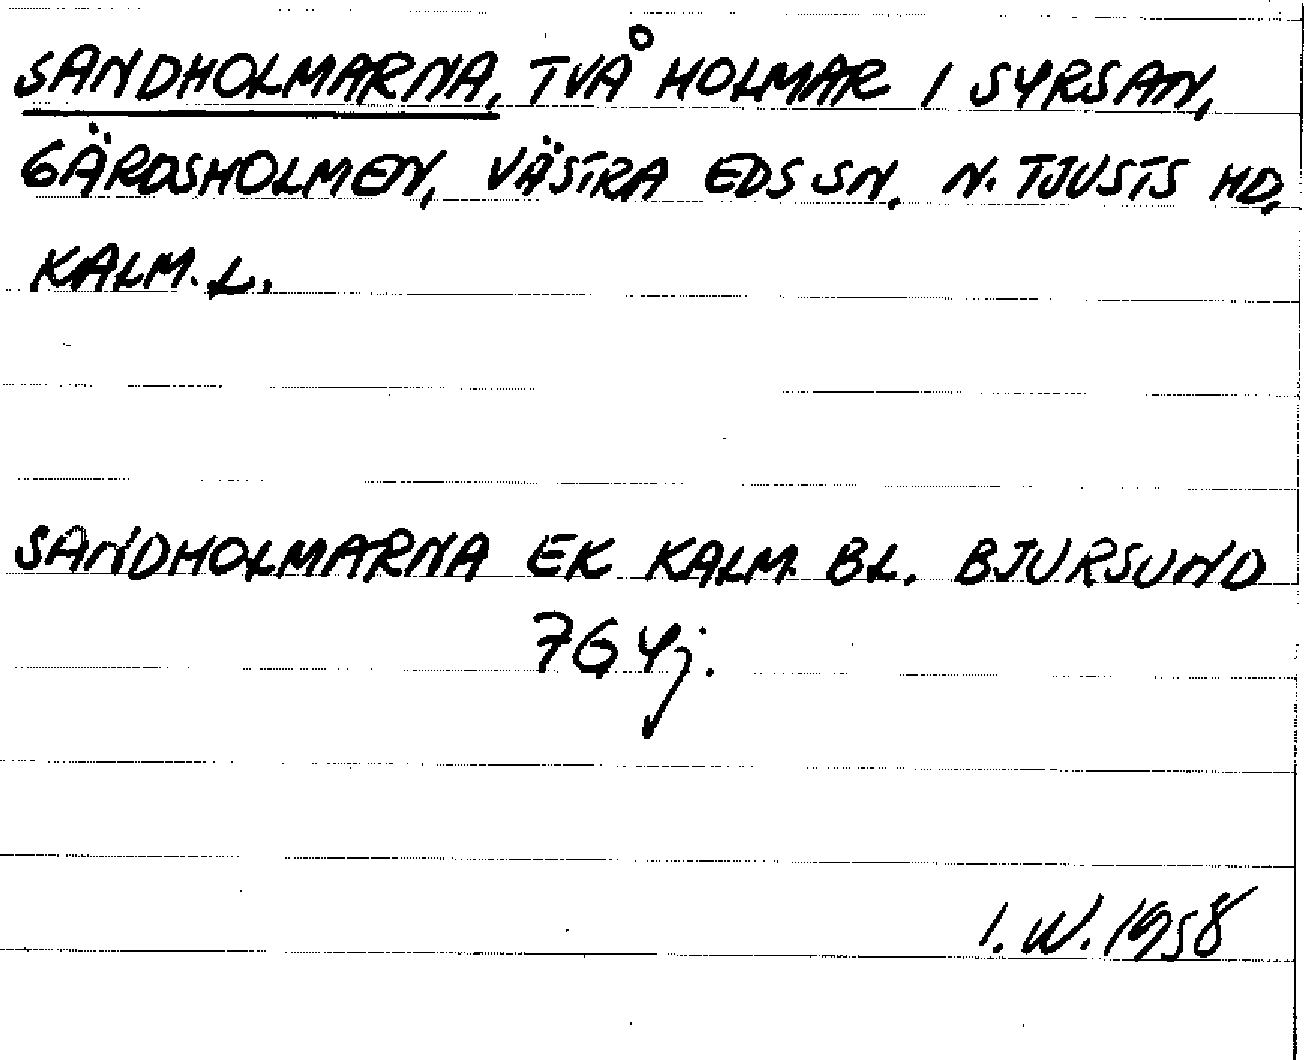 SANDHOLMARNA, TVÅ HOLMAR I SYRSAN,
GÄRDSHOLMEN, VÄSTRA EDS SN. N. TJUSTS HD,
KALM. L.
SANDHOLMARNA EK KALM. BL. BJURSUND
7G4j.
I. W. 1958